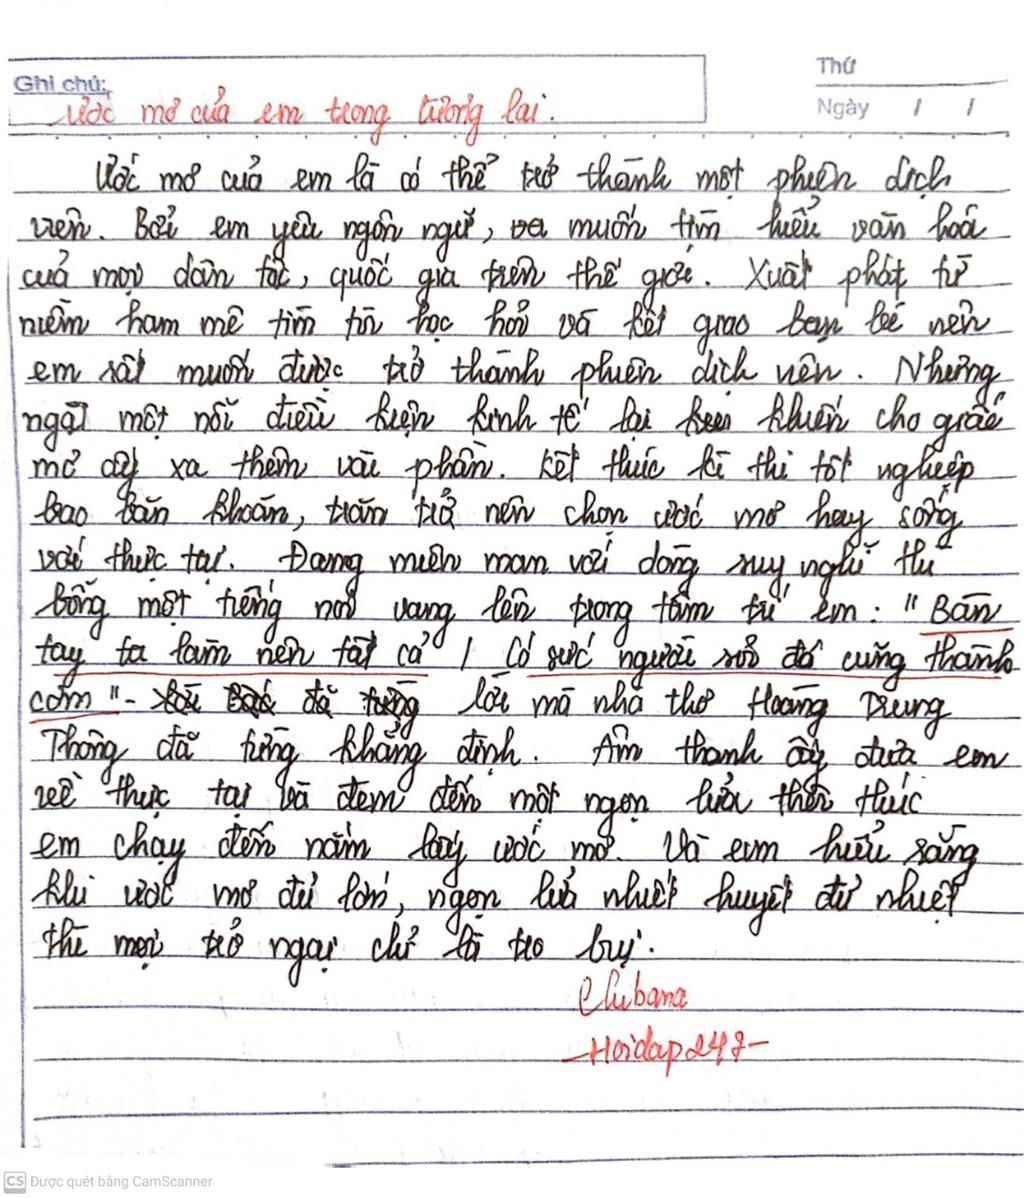 Ghi chú:
Thứ
Ước mơ của em trong tương lai.
Ngày / /
Ước mơ của em là có thể trở thành một phiên dịch
viên. Bởi em yêu ngôn ngữ, và muốn tìm hiểu văn hoá
của mọi dân tộc, quốc gia trên thế giới. Xuất phát từ
niềm ham mê tìm tòi học hỏi và kết giao bạn bè nên
em rất muốn được trở thành phiên dịch viên. Nhưng
ngặt một nỗi điều kiện kinh tế lại khiến cho giấc
mơ ấy xa thêm vài phần. Kết thúc kì thi tốt nghiệp
bao băn khoăn, trăn trở nên chọn ước mơ hay sống
với thực tại. Đang miên man với dòng suy nghĩ thì
bỗng một tiếng nói vang lên trong tâm trí em: "Bàn
tay ta làm nên tất cả / Có sức người sỏi đá cũng thành
cơm" - lời mà nhà thơ Hoàng Trung
Thông đã từng khẳng định. Âm thanh ấy đưa em
về thực tại và đem đến một ngọn lửa thôi thúc
em chạy đến nắm lấy ước mơ. Và em hiểu rằng
khi ước mơ đủ lớn, ngọn lửa nhiết huyết đủ nhiệt
thì mọi trở ngại chỉ là tro bụi.
Chubana
-Hoidap247-
CS Được quét bằng CamScanner